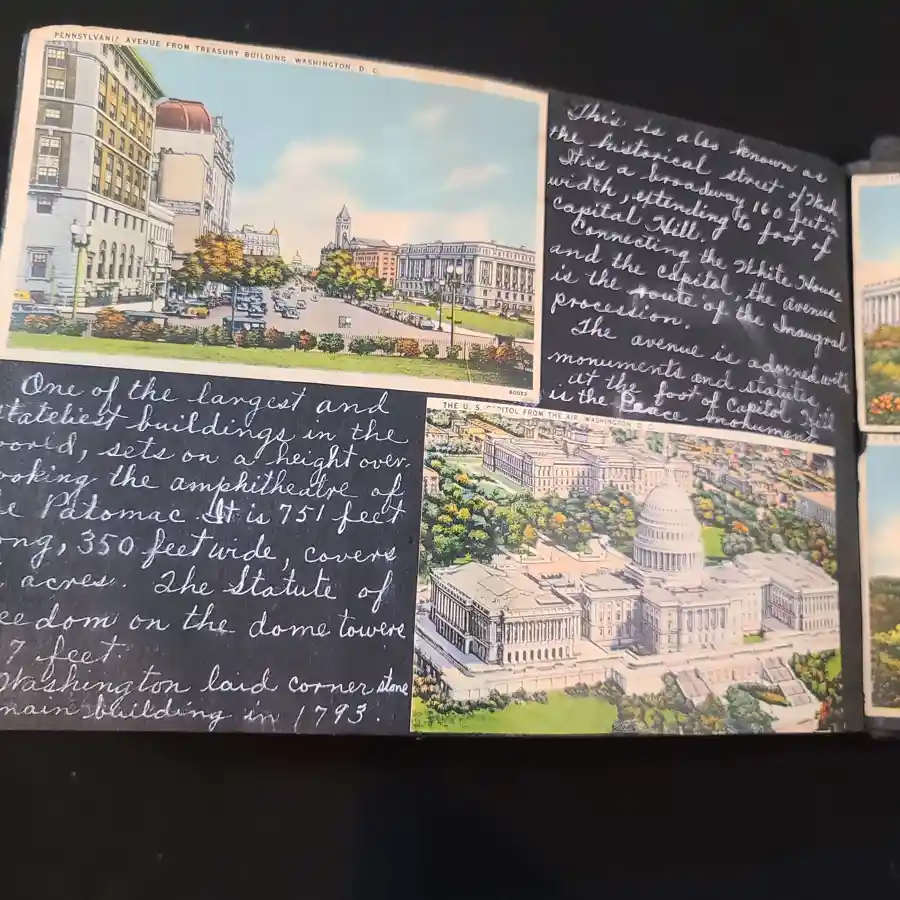 PENNSYLVANIA AVENUE FROM TREASURY BUILDING, WASHINGTON, D. C.
60033
This is also known as
the historical street of Wash.
It is a broadway 160 feet in
width, extending to foot of
capital Hill.
Connecting the White House
and the capitol, the avenue
is the route of the Inaugral
procession.
The avenue is adorned with
monuments and statutes
at the foot of Capitol Hill
is the Peace Monument
One of the largest and
stateliest buildings in the
world, sets on a height over-
ooking the amphitheatre of
e Patomac. It is 751 feet
ong, 350 feet wide, covers
acres. The Statute of
eedom on the dome towers
7 feet.
Washington laid corner stone
main building in 1793.
THE U. S. CAPITOL FROM THE AIR, WASHINGTON, D. C.